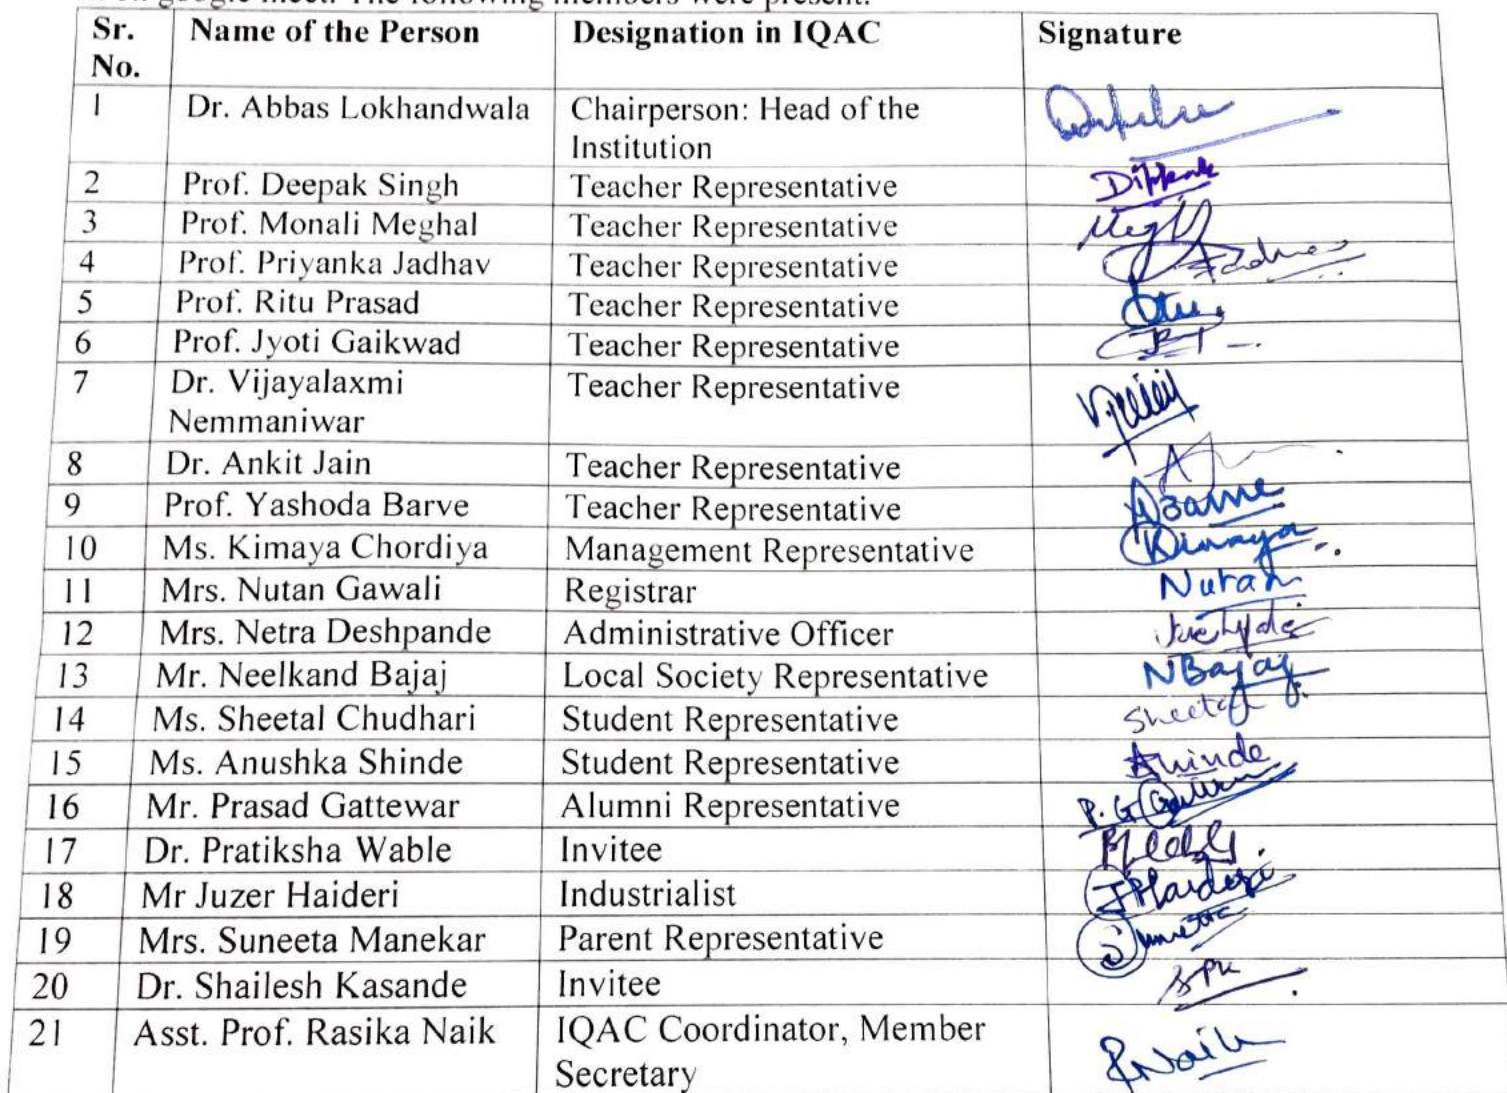 google meet. The following members were present.
Sr. No. Name of the Person Designation in IQAC Signature
1 Dr. Abbas Lokhandwala Chairperson: Head of the
Institution
2 Prof. Deepak Singh Teacher Representative
3 Prof. Monali Meghal Teacher Representative
4 Prof. Priyanka Jadhav Teacher Representative
5 Prof. Ritu Prasad Teacher Representative
6 Prof. Jyoti Gaikwad Teacher Representative
7 Dr. Vijayalaxmi Teacher Representative
Nemmaniwar
8 Dr. Ankit Jain Teacher Representative
9 Prof. Yashoda Barve Teacher Representative
10 Ms. Kimaya Chordiya Management Representative
11 Mrs. Nutan Gawali Registrar Nutan
12 Mrs. Netra Deshpande Administrative Officer
13 Mr. Neelkand Bajaj Local Society Representative NBajaj
14 Ms. Sheetal Chudhari Student Representative Sheetal
15 Ms. Anushka Shinde Student Representative
16 Mr. Prasad Gattewar Alumni Representative
17 Dr. Pratiksha Wable Invitee
18 Mr Juzer Haideri Industrialist
19 Mrs. Suneeta Manekar Parent Representative
20 Dr. Shailesh Kasande Invitee
21 Asst. Prof. Rasika Naik IQAC Coordinator, Member RNaik
Secretary